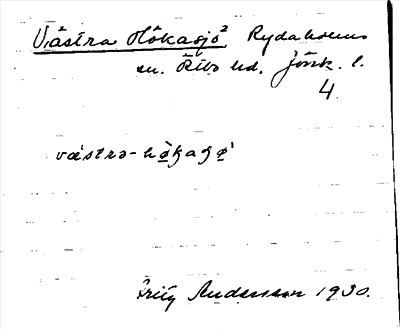 Västra Hökasjö Rydaholms
sn. Östbo hd. Jönk. l.
4.
västra-hökasö
Fritz Andersson 1930.